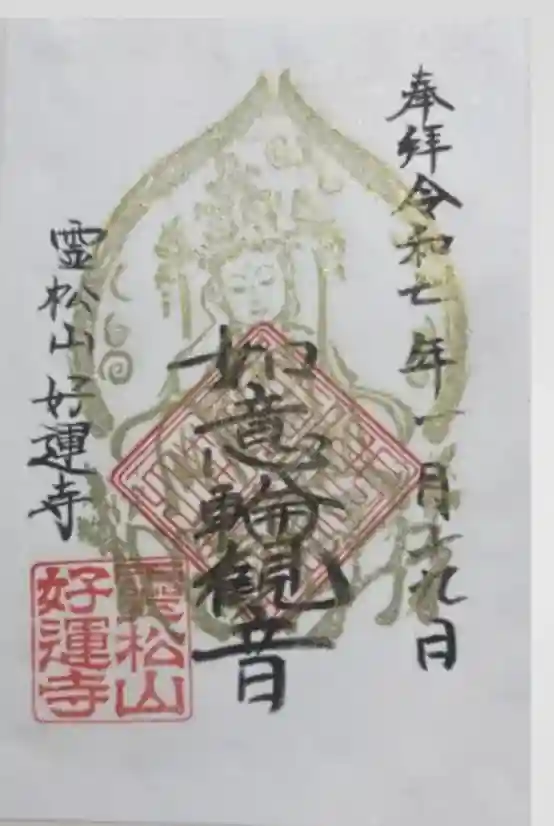 奉拝令和七年一月十九日
如意輪観音
霊松山好運寺
霊松山
好運寺